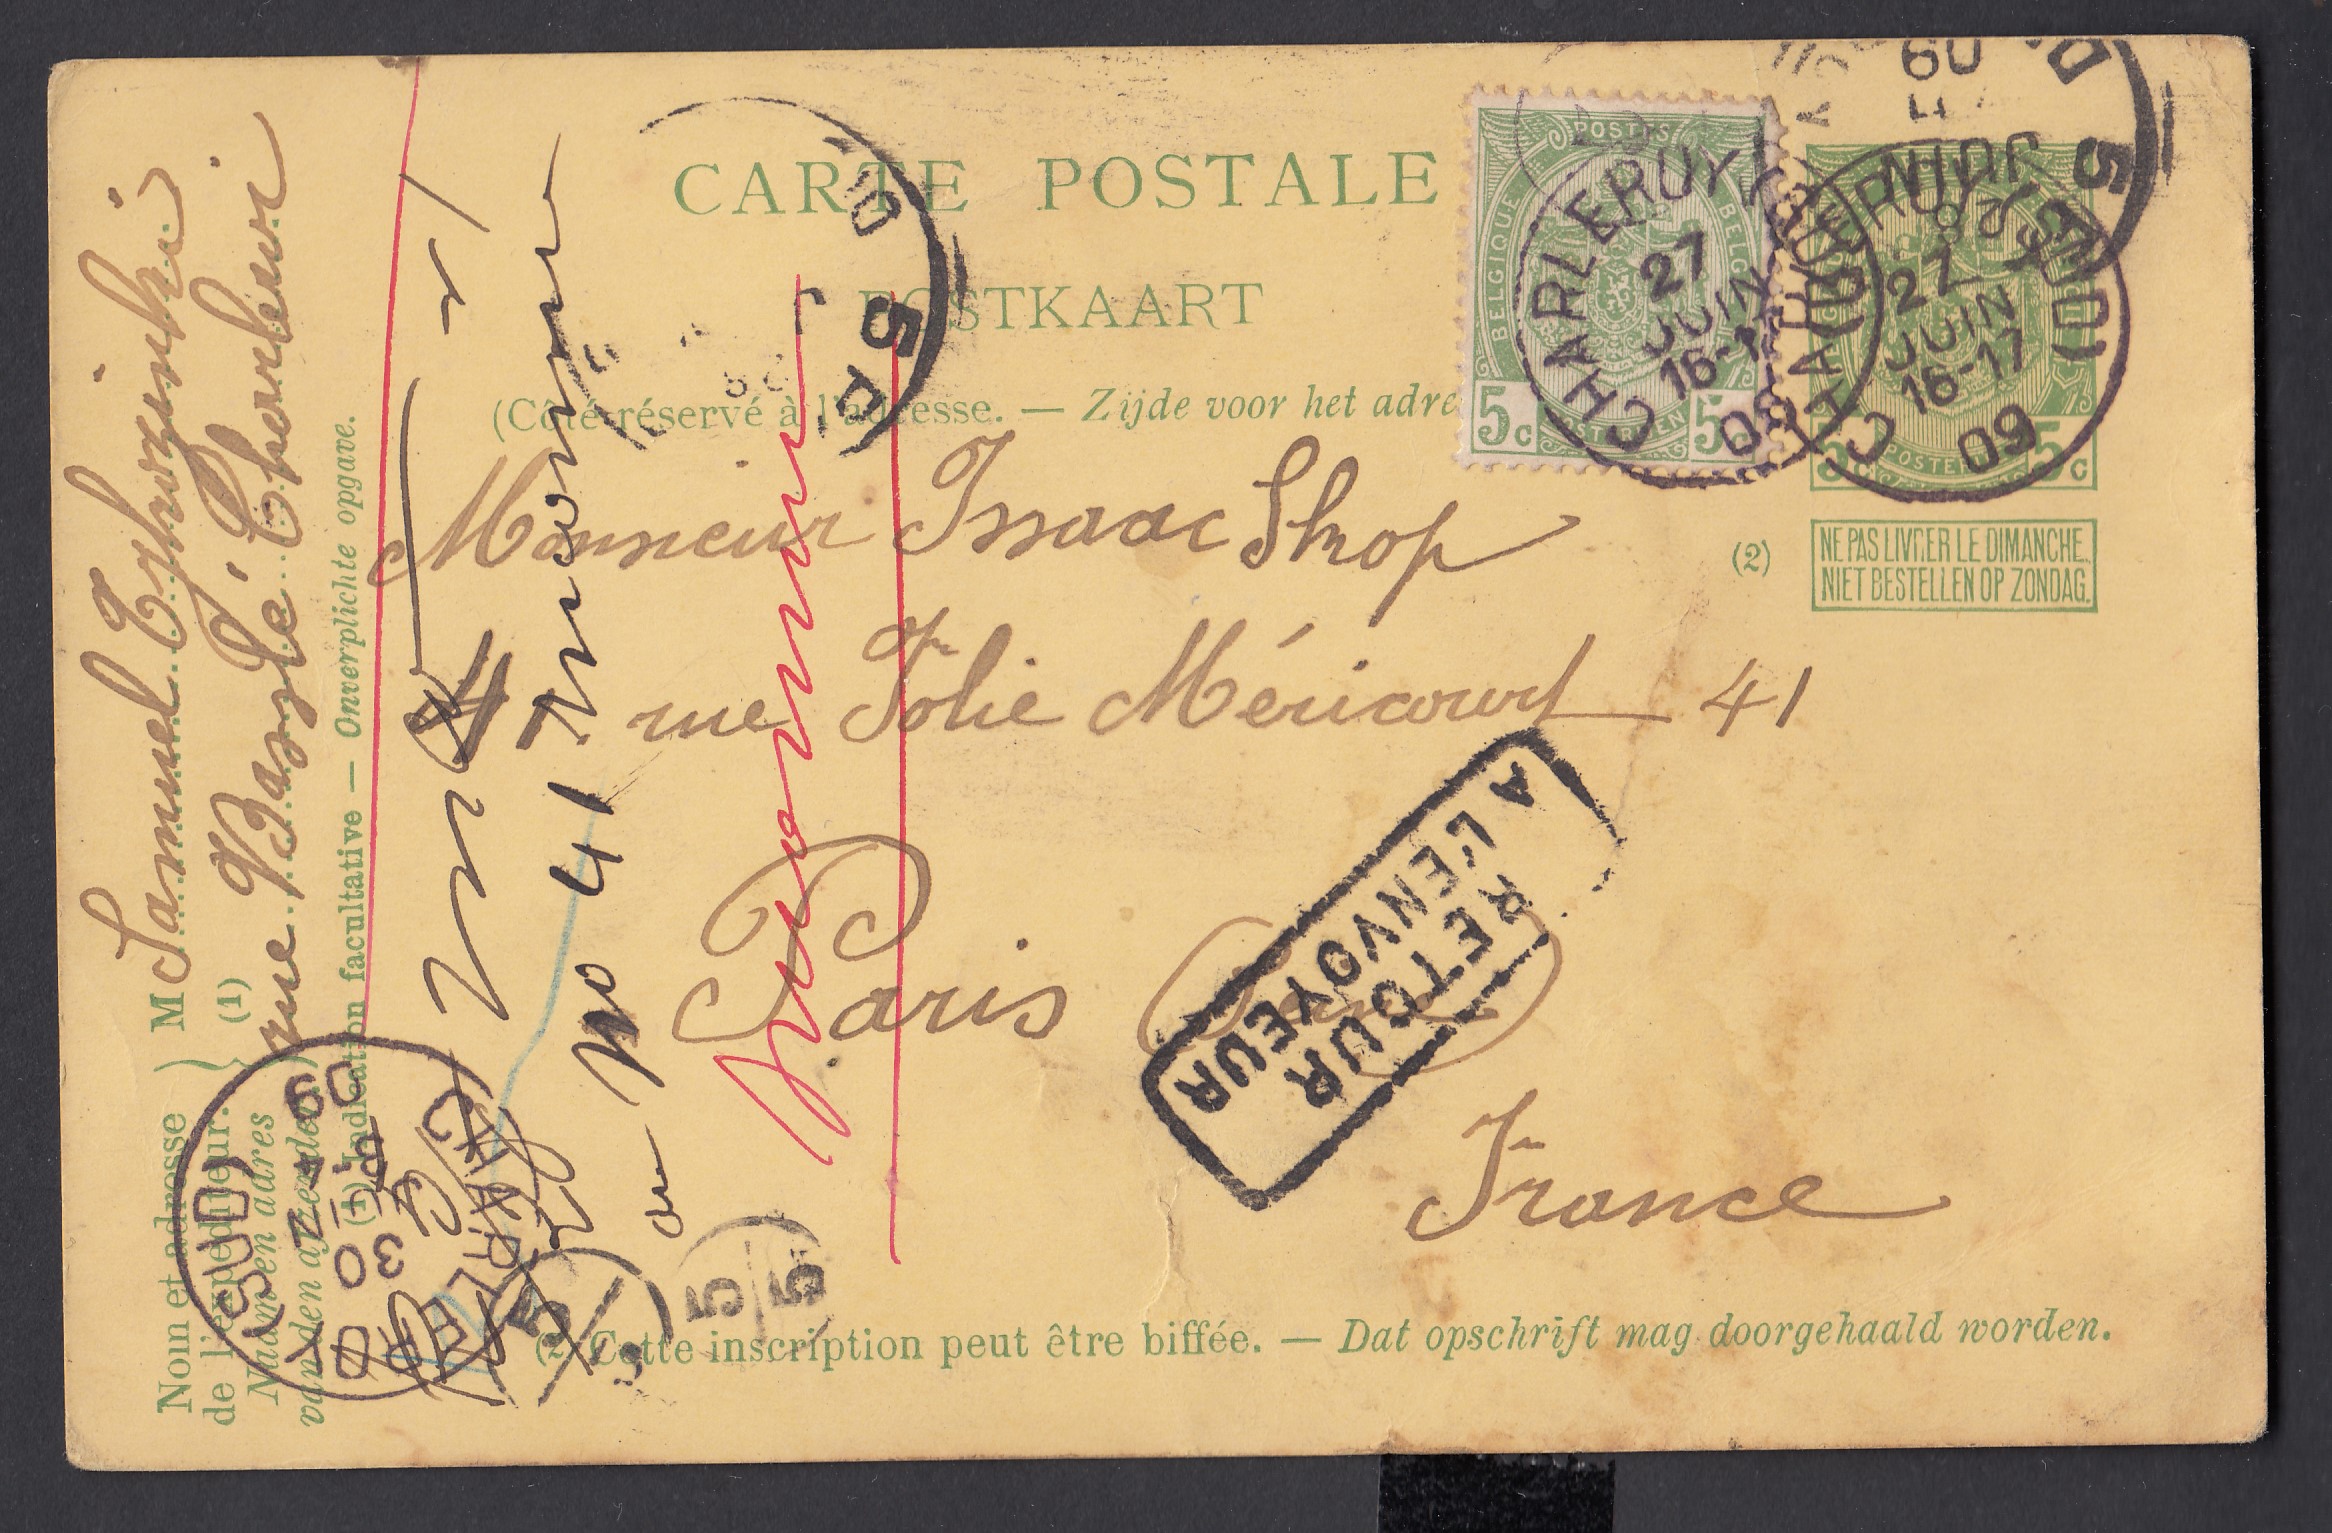 CARTE POSTALE
POSTKAART
(Côté réservé à l'adresse. — Zijde voor het adre
POSTES
BELGIQUE BELG
5c POSTERIJEN 5
CHARLEROY
27
JUIN
16-1
09
CHARLEROY (SUD)
27
JUIN
16-17
09
5c POSTERIJEN 5c
JUIN
09
5
D
5
(2)
NE PAS LIVRER LE DIMANCHE.
NIET BESTELLEN OP ZONDAG.
Monsieur Issaac Skop
rue Folie Méricourt 41
Paris
France
RETOUR
A L'ENVOYEUR
inconnu
au no 41 Inconnu
Nom et adresse
de l'expéditeur.
Naam en adres
van den afzender.
(1)
M Samuel
rue Basslé Charleroi
(1) Indication facultative — Onverplichte opgave.
CHARLEROY (SUD)
30
09
5
5
5
(2) Cette inscription peut être biffée. — Dat opschrift mag doorgehaald worden.